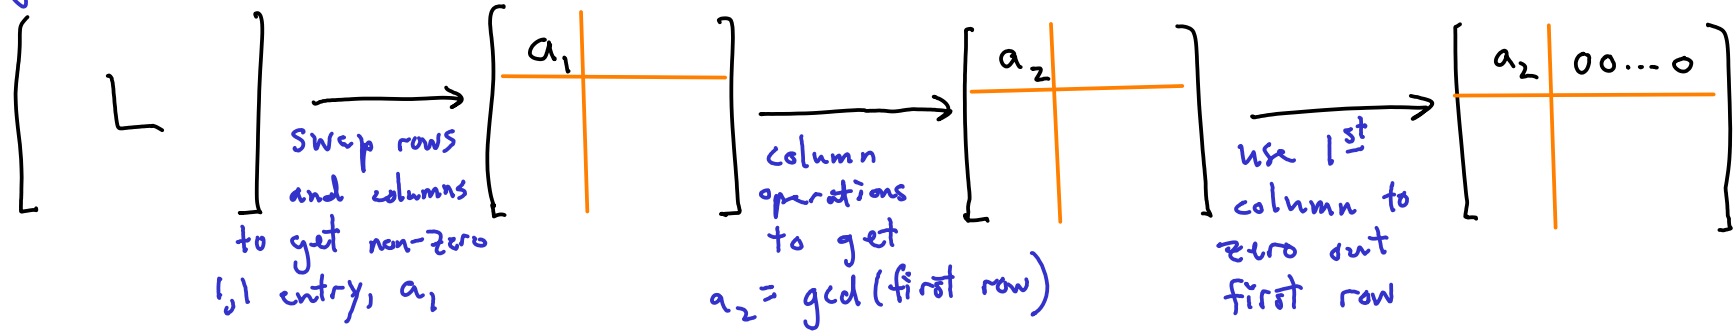 a₁
a₂
a₂ 00...0
swap rows
and columns
to get non-zero
1,1 entry, a₁
column
operations
to get
a₂ = gcd(first row)
use 1st
column to
zero out
first row